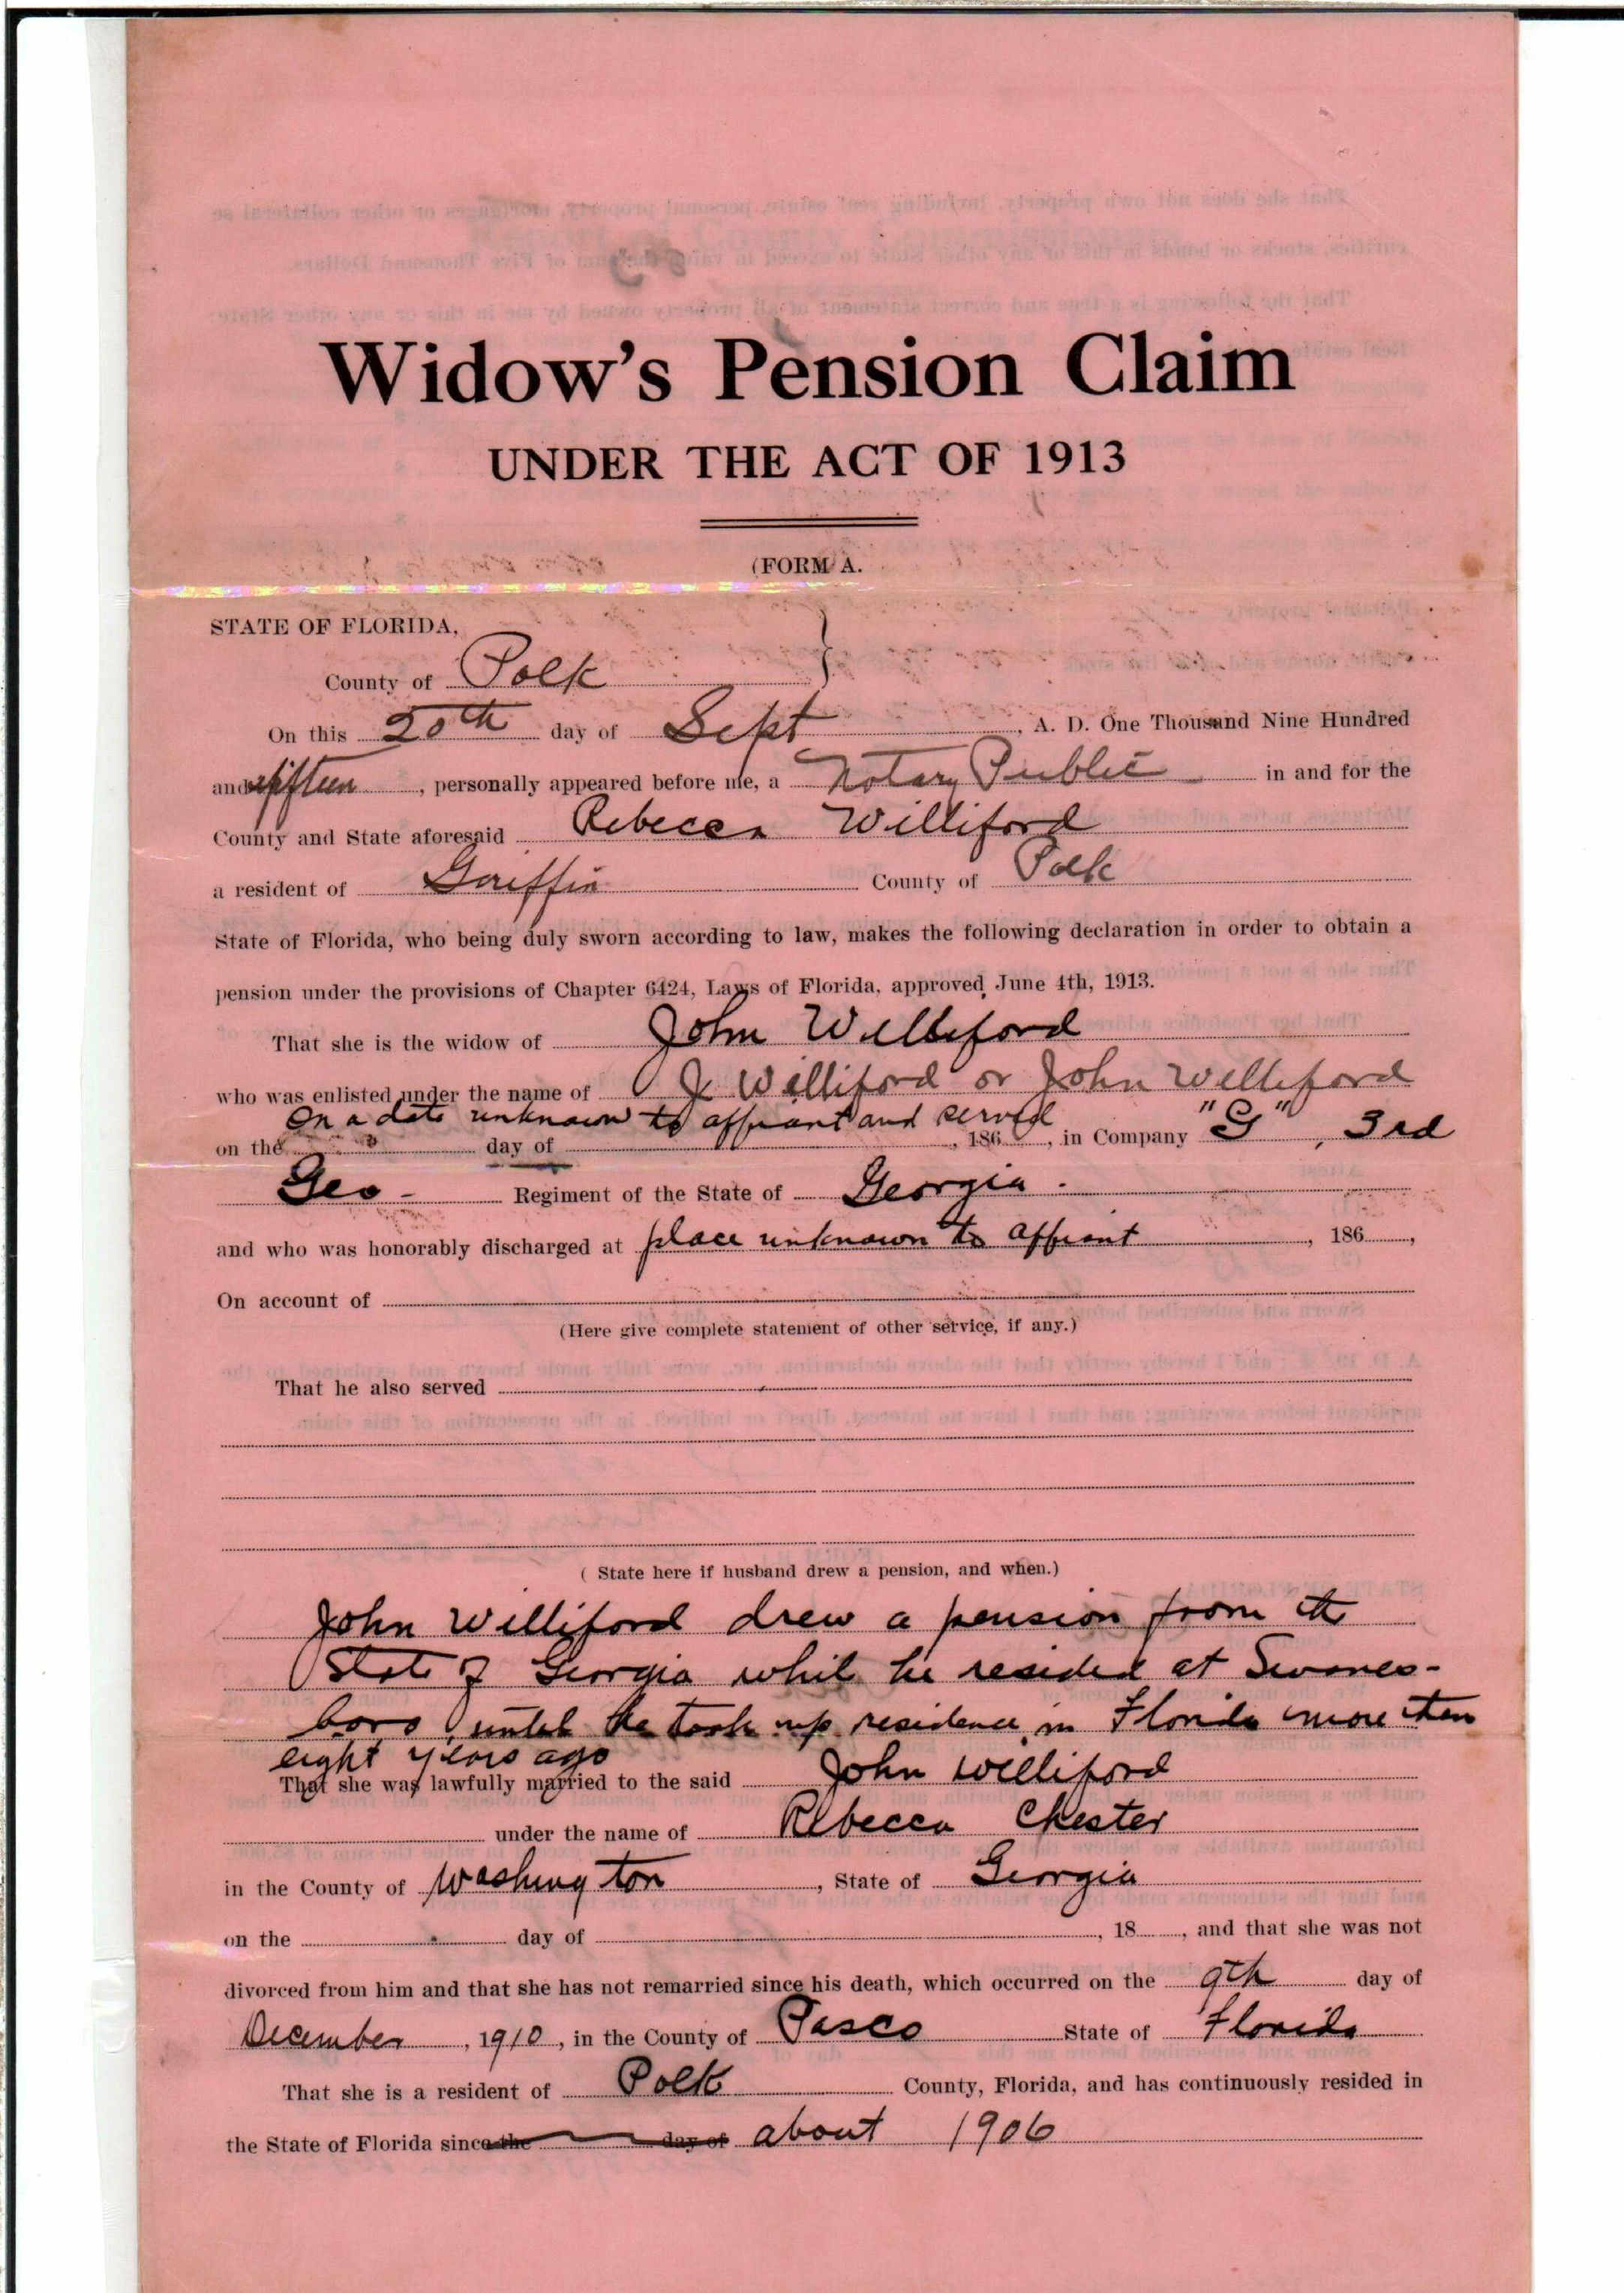 Widow's Pension Claim
UNDER THE ACT OF 1913
(FORM A.
STATE OF FLORIDA,
County of Polk
On this 20th day of Sept, A. D. One Thousand Nine Hundred
and fifteen, personally appeared before me, a Notary Public in and for the
County and State aforesaid Rebecca Williford
a resident of Griffin County of Polk
State of Florida, who being duly sworn according to law, makes the following declaration in order to obtain a
pension under the provisions of Chapter 6424, Laws of Florida, approved June 4th, 1913.
That she is the widow of John Williford
who was enlisted under the name of J Williford or John Williford
On a date unknown to affiant and served
on the day of , 186 , in Company "G", 3rd
Geo - Regiment of the State of Georgia.
and who was honorably discharged at place unknown to affiant , 186 ,
On account of
(Here give complete statement of other service, if any.)
That he also served
( State here if husband drew a pension, and when.)
John Williford drew a pension from the
State of Georgia while he resided at Swanes-
boro, until he took up residence in Florida more than
eight years ago
That she was lawfully married to the said John Williford
under the name of Rebecca Chester
in the County of Washington, State of Georgia
on the day of , 18 , and that she was not
divorced from him and that she has not remarried since his death, which occurred on the 9th day of
December, 1910, in the County of Pasco State of Florida
That she is a resident of Polk County, Florida, and has continuously resided in
the State of Florida since the day of about 1906